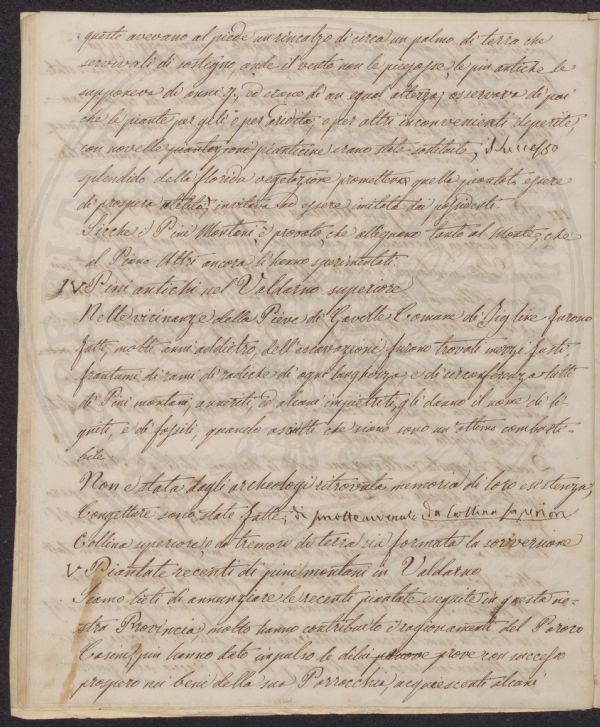 questi avevano al piede un rincalzo di circa un palmo di terra che
servivali di sostegno, onde il vento non le piegasse, le piu antiche le
supponeva di anni 7, ed erano di un egual altezza; osservava di poi
che le piante per geli e per aridità, e per altri inconvenienti deperite,
con novelle piantazione pianticine erano state sostituite, il successo
splendido della florida vegetazione prometteva quella piantata essere
di prospera utilità, invitava ad essere imitata dai possidenti
Sicche i Pini Montani è provato, che allignano tanto al Monte, che
al Piano Altri ancora li hanno sperimentati.
IV. Pini antichi nel Valdarno superiore
Nelle vicinanze della Pieve di Gaville Comune di Figline furono
fatte molte anni addietro dell'escavazioni furono trovati mezzi fusti,
frantumi di rami di radiche di ogni lunghezza, e di circonferenza tutti
di Pini montani, anneriti, ed alcuni impietriti, gli danno il nome di li-
gniti, e di fossili, quando asciutti che sieno sono un'ottimo combusti-
bile.
Non è stata dagli archeologi ritrovata memoria di loro esistenza,
Congetture sono state fatte, di da collina superiore
Collina superiore, o da tremori di terra sia formata la sovversione
V. Piantate recenti di pini montani in Valdarno
Siamo lieti di annunziare le recenti piantate eseguite in questa no-
stra Provincia, molto hanno contribuito i ragionamenti del Paroco
Casini, piu hanno dato impulso le di lui prove con successo
prospero nei beni della sua Parrocchia, acquiescenti alcuni